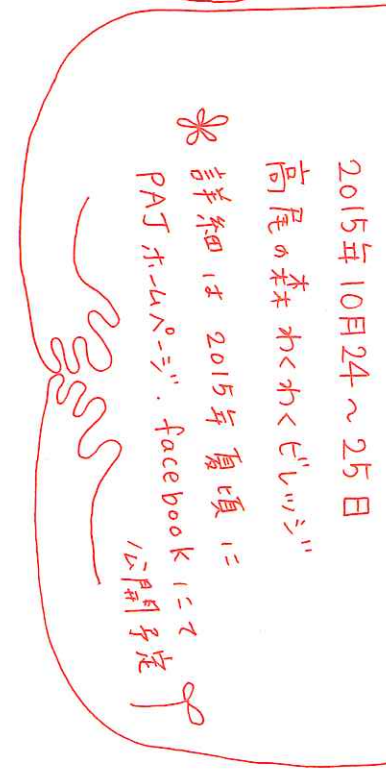 2015年10月24~25日
高尾の森わくわくビレッジ
詳細は2015年夏頃に
PAJホームページ.facebookにて
公開予定